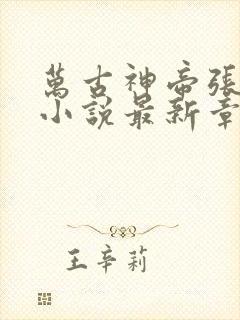 萬古神帝張
小說最新章
王辛莉